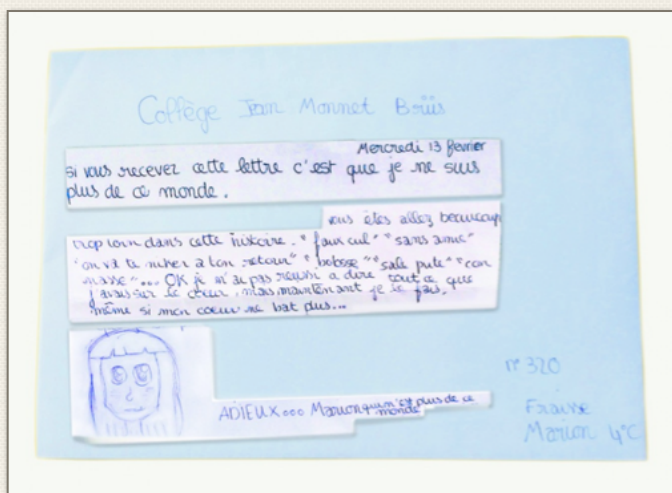 Collège Jean Monnet Briis
Mercredi 13 février
si vous recevez cette lettre c'est que je ne suis
plus de ce monde.
vous êtes allez beaucoup
trop loin dans cette histoire. "faux cul" "sans amie"
"on va te niker à ton retour" "bobosse" "sale pute" "con
nasse"... OK je n'ai pas reussi a dire tout ce que
j'avais sur le coeur, mais maintenant je le fais,
même si mon coeur ne bat plus...
n° 320
ADIEUX... Marion qui n'est plus de ce
monde
Fraisse
Marion 4°C